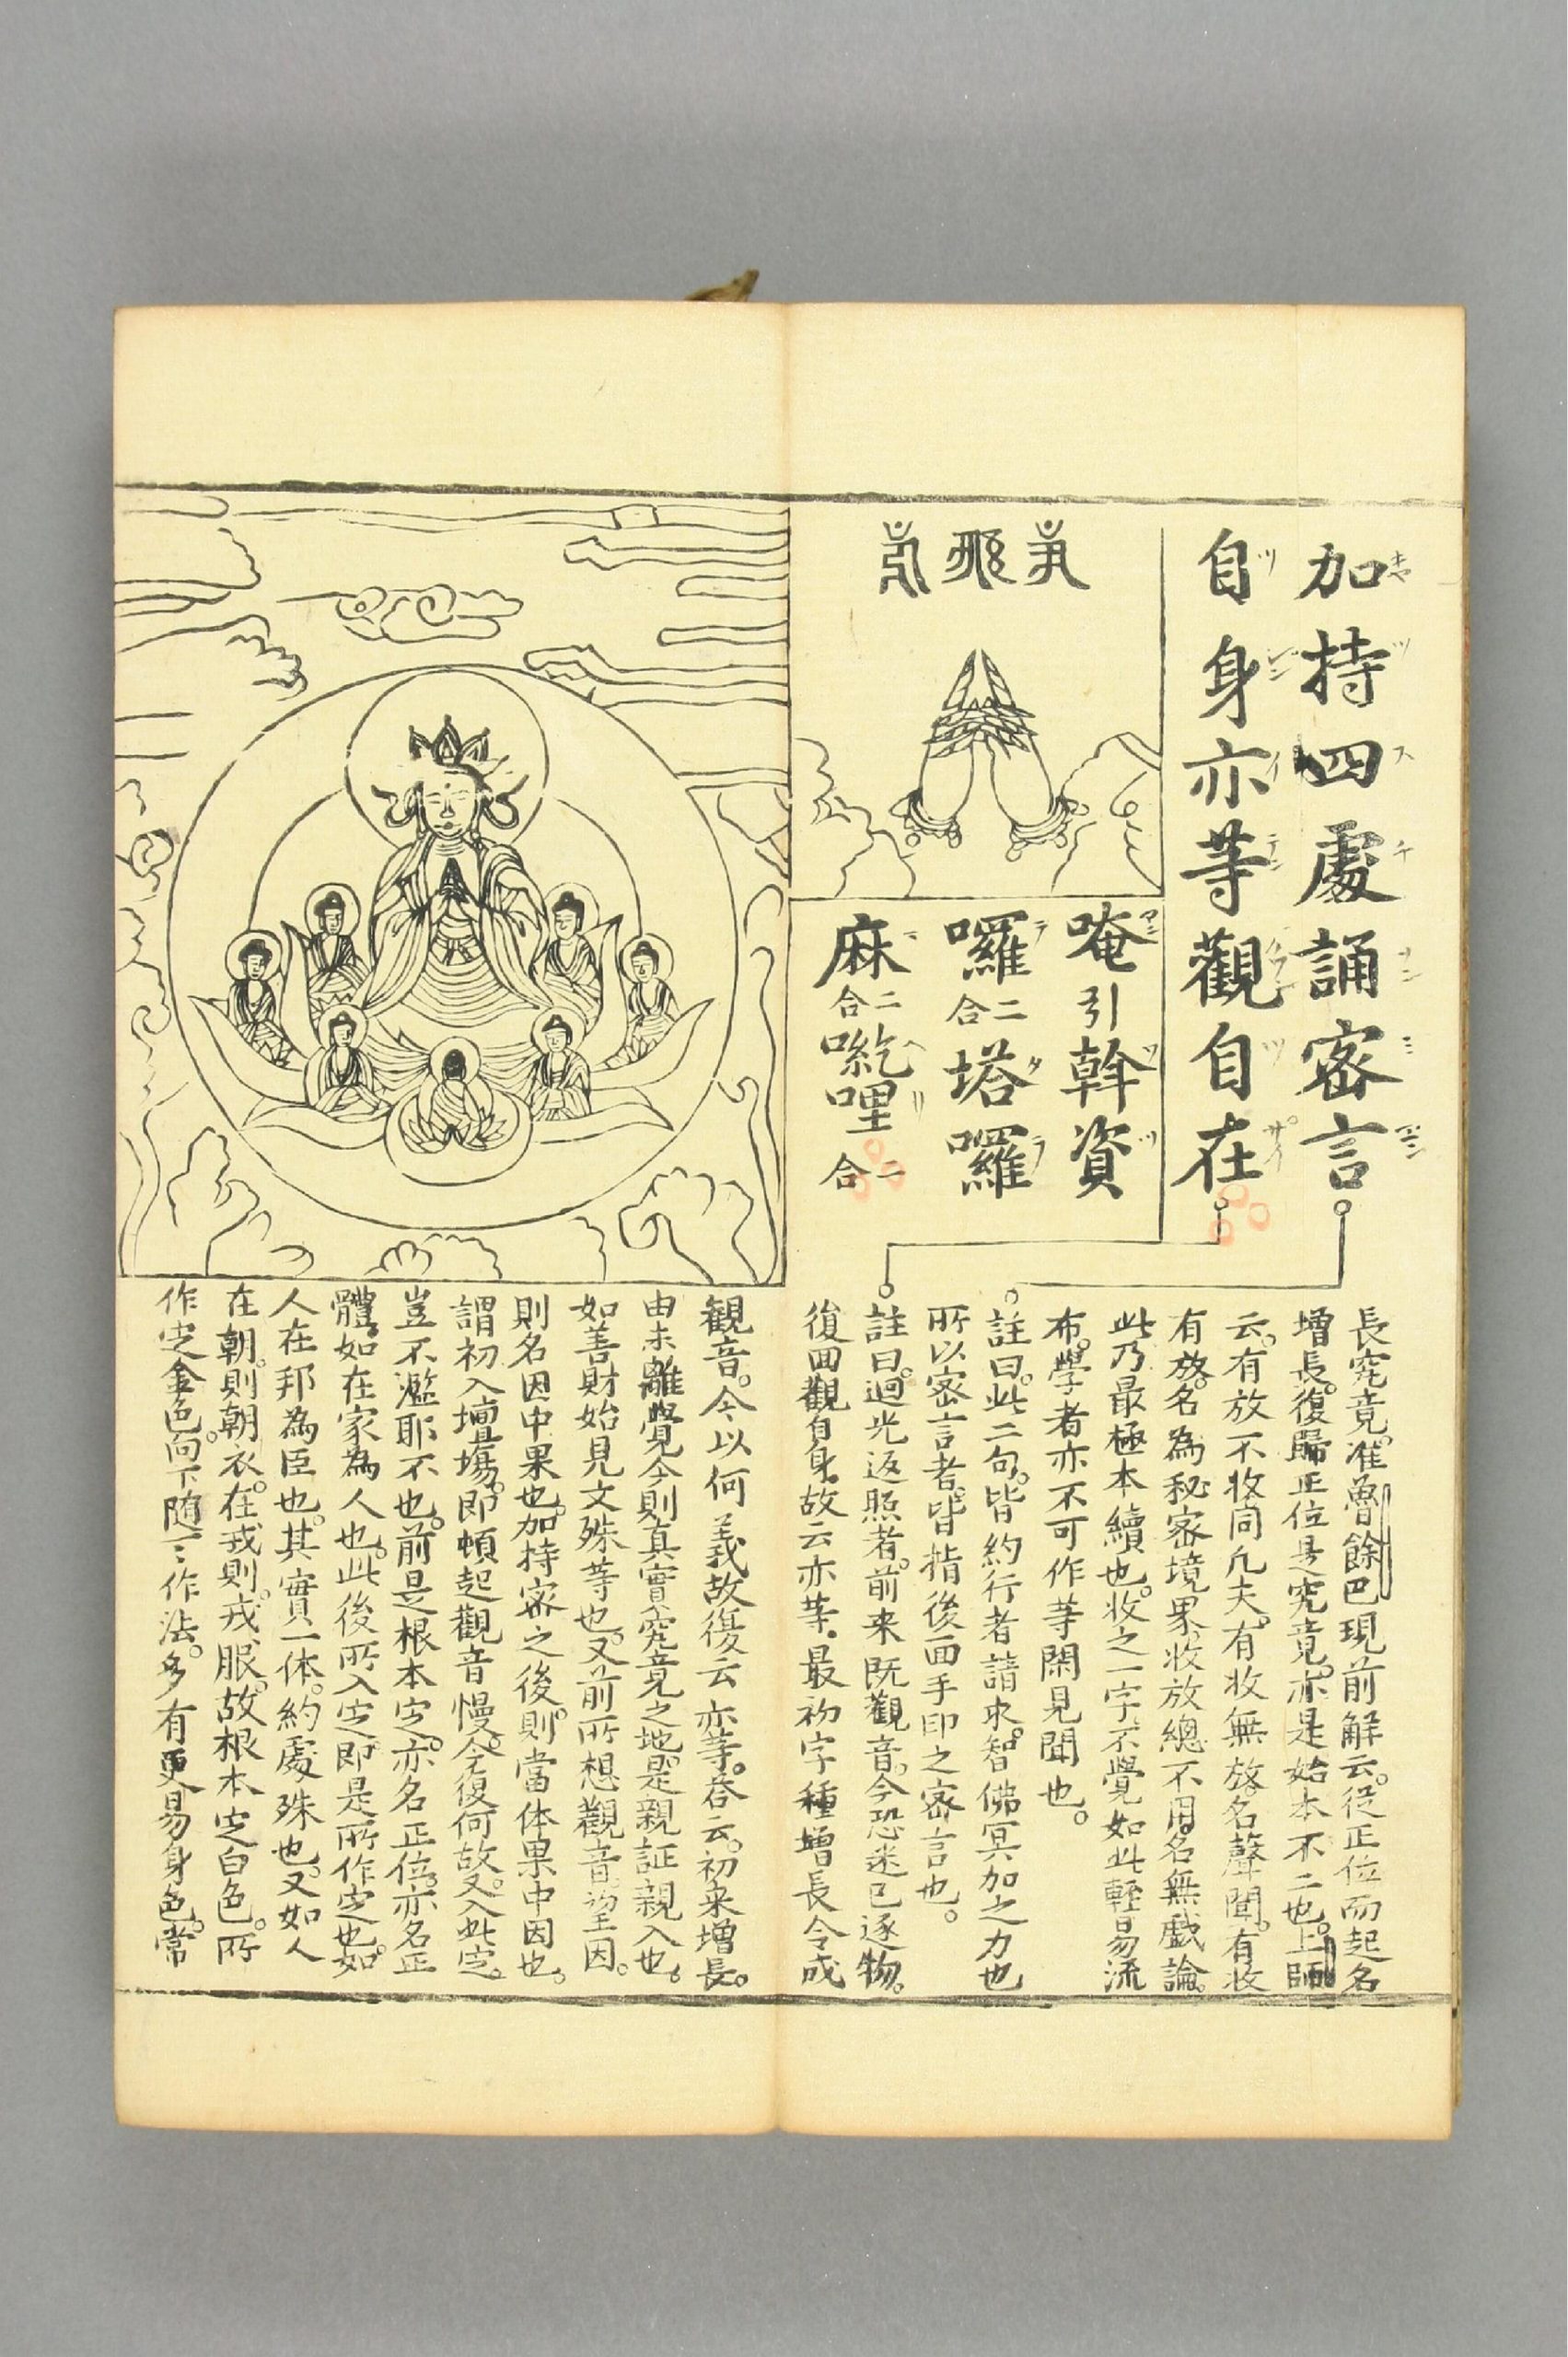 加持四處誦密言
自身亦等觀自在
唵引斡資
囉二合塔囉
麻二合㘕哩二合
長究竟准魯餘巴現前解云。從正位而起名
增長。復歸正位是究竟。亦是始本不二也。上師
云。有放不收同凡夫。有收無放。名聲聞。有收
有放。名為秘密境界。收放總不用。名無戲論。
此乃最極本續也。收之一字不覺如此輕易流
布。學者亦不可作等閑見聞也。
註曰。此二句。皆約行者請求。智佛冥加之力也
所以密言者。皆指後面手印之密言也。
註曰。迴光返照者。前来既觀音。今恐迷已逐物。
復回觀自身。故云亦等。最初字種增長令成
觀音。今以何義故復云亦等。荅云。初来增長。
由未離覺今則真實究竟之地。是親証親入也。
如善財始見文殊等也。又前所想觀音。望因。
則名因中果也。加持密之後。則當体果中因也。
謂初入壇塲。即頓起觀音慢。今復何故。又入此定。
豈不濫耶不也。前是根本定。亦名正位。亦名正
體。如在家為人也。此後所入定。即是所作定也。如
人在邦為臣也。其實一体。約處殊也。又如人
在朝。則朝衣。在戎則戎服。故根本定白色。所
作定金色。向下随三作法。多有更易身色。常